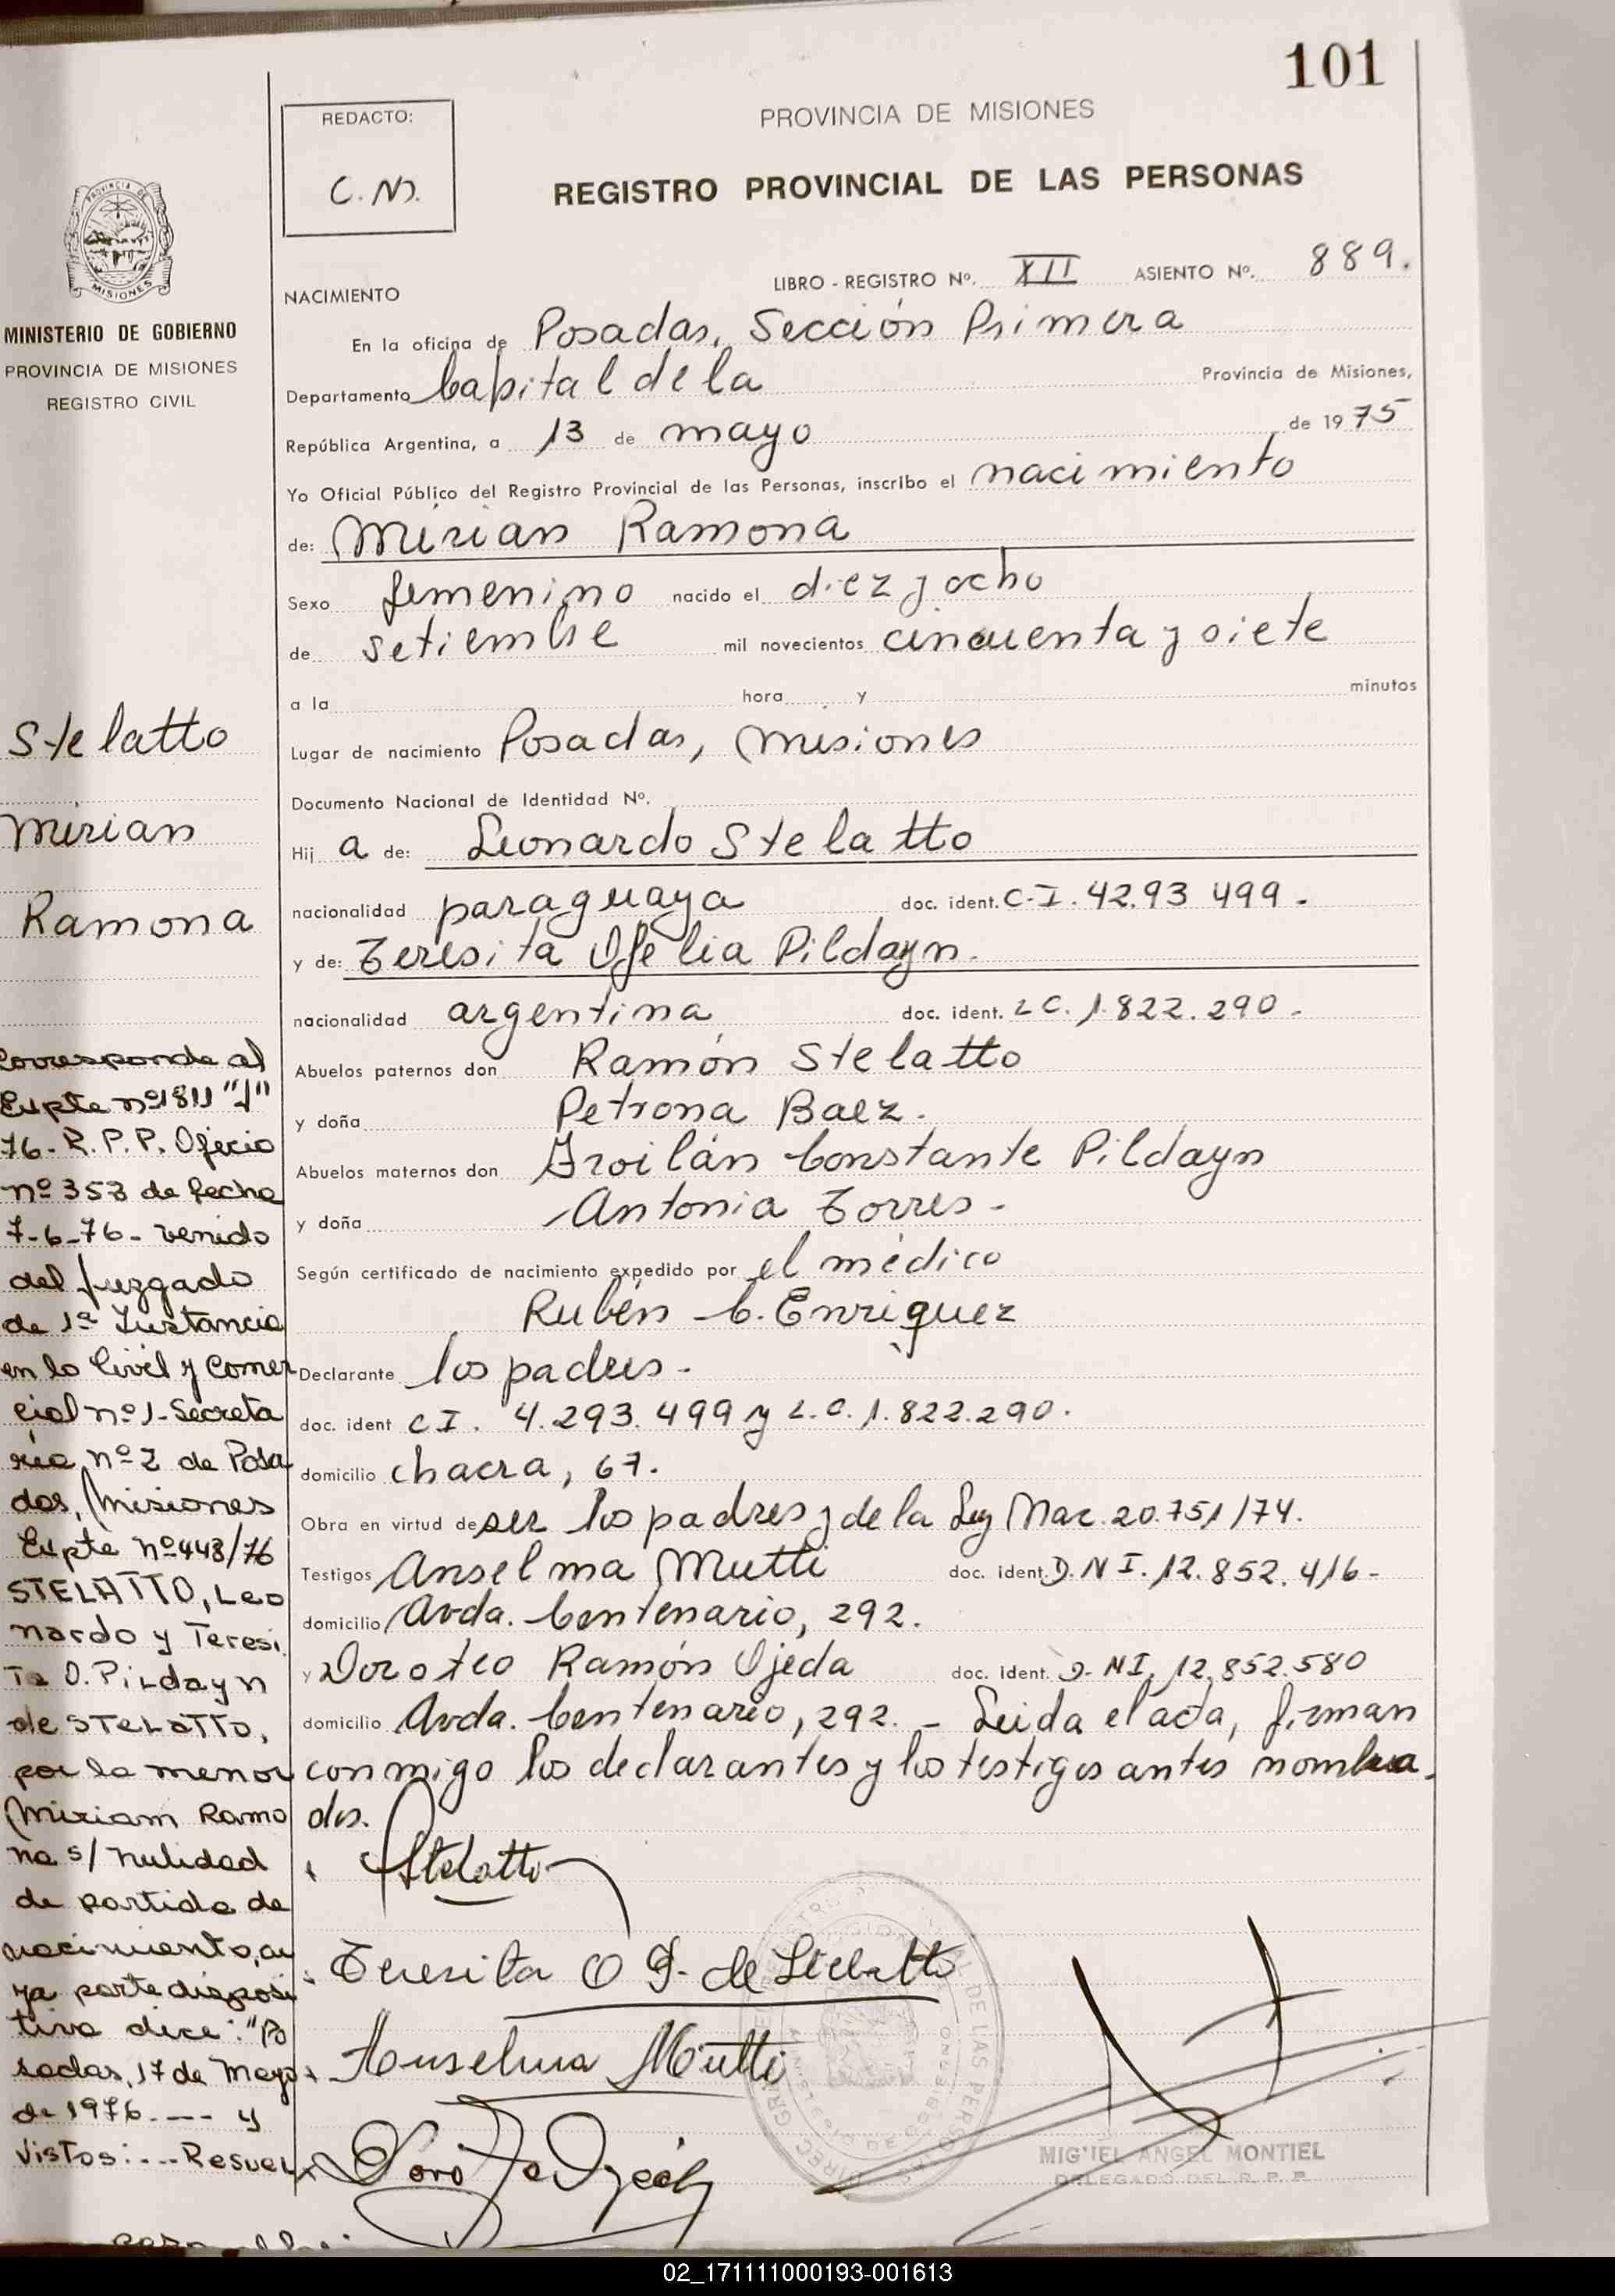 101
REDACTO:
C. N.
PROVINCIA DE MISIONES
REGISTRO PROVINCIAL DE LAS PERSONAS
LIBRO - REGISTRO Nº. XII ASIENTO Nº. 889.
PROVINCIA DE
MISIONES
MINISTERIO DE GOBIERNO
PROVINCIA DE MISIONES
REGISTRO CIVIL
NACIMIENTO
En la oficina de Posadas, Sección Primera
Departamento Capital de la Provincia de Misiones,
República Argentina, a 13 de mayo de 1975
Yo Oficial Público del Registro Provincial de las Personas, inscribo el nacimiento
de: Mirian Ramona
Sexo femenino nacido el diez y ocho
de setiembre mil novecientos cincuenta y siete
a la hora y minutos
Lugar de nacimiento Posadas, Misiones
Documento Nacional de Identidad Nº.
Hij a de: Leonardo Stelatto
nacionalidad paraguaya doc. ident. C.I. 42.93 499.
y de: Teresita Ofelia Pildayn.
nacionalidad argentina doc. ident. L C. 1.822.290.
Abuelos paternos don Ramón Stelatto
y doña Petrona Baez.
Abuelos maternos don Froilán Constante Pildayn
y doña Antonia Torres -
Según certificado de nacimiento expedido por el médico
Rubén C. Enriquez
Declarante los padres -
doc. ident C I. 4.293.499 y L.C. 1.822.290.
domicilio chacra, 67.
Obra en virtud de ser los padres y de la Ley Nac. 20.751/74.
Testigos Anselma Mutti doc. ident. D. N I. 12.852.416-
domicilio Avda. Centenario, 292.
y Doroteo Ramón Ojeda doc. ident. D. N I. 12.852.580
domicilio Avda. Centenario, 292. - Leida el acta, firman
conmigo los declarantes y los testigos antes nombra-
dos.
Stelatto
Teresita O P. de Stelatto
Anselma Mutti
MIGUEL ANGEL MONTIEL
DELEGADO DEL R. P. P.
Stelatto
Mirian
Ramona
Corresponde al
Expte nº1811 "J"
76- R. P. P. Oficio
nº 353 de fecha
7-6-76- venido
del Juzgado
de 1ª Instancia
en lo Civil y Comer
cial nº1-Secreta
ría nº 2 de Posa
das, Misiones
Expte nº443/76
STELATTO, Leo
nardo y Teresi
Ta O. Pildayn
de STELATTO,
por la menor
Miriam Ramo
na s/ nulidad
de partida de
nacimiento, cu
ya parte disposi
tiva dice: "Po
sadas, 17 de Mayo
de 1976.--- y
Vistos:...-Resuel
02_171111000193-001613